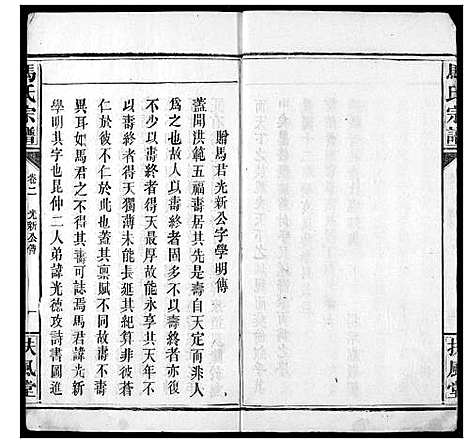 馬氏宗譜
扶風堂
贈馬君光新公字學明傳
蓋聞洪範五福壽居其先是壽自天定而非人
為之也故人以壽終者固多不以壽終者亦復
不少以壽終者得天最厚故能永享其天年不
以壽終者得天獨薄未能長延其紀算非彼甚
仁於彼不仁於此也蓋其稟賦不同故壽不壽
異耳如馬君之不得其壽可誌焉馬君諱光新
學明其字也昆仲二人弟諱光德攻詩書圖進
馬氏宗譜
卷二
光新公傳
一
扶風堂